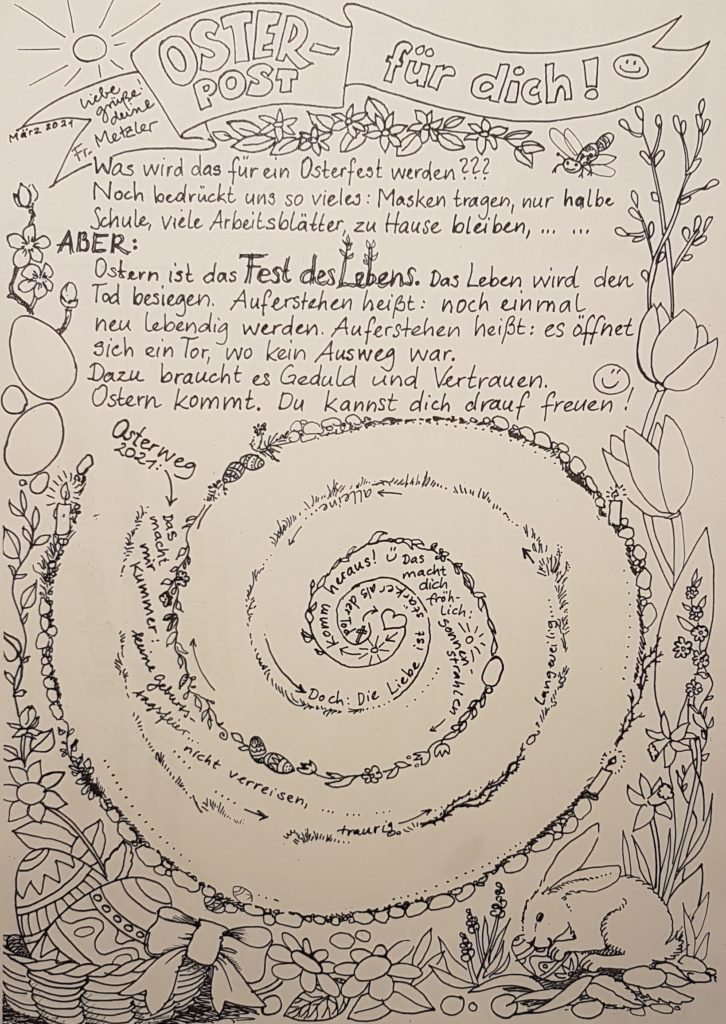 OSTER-
POST
für dich!
Liebe
grüße
deine
Fr. Metzler
März 2021
Was wird das für ein Osterfest werden???
Noch bedrückt uns so vieles: Masken tragen, nur halbe
Schule, viele Arbeitsblätter, zu Hause bleiben, ... ...
ABER:
Ostern ist das Fest des Lebens. Das Leben wird den
Tod besiegen. Auferstehen heißt: noch einmal
neu lebendig werden. Auferstehen heißt: es öffnet
sich ein Tor, wo kein Ausweg war.
Dazu braucht es Geduld und Vertrauen.
Ostern kommt. Du kannst dich drauf freuen!
Osterweg
2021:
Das
macht
mir
Kummer:
keine Geburts-
tagsfeier
nicht verreisen, ...
traurig
langweilig
alleine
Doch: Die Liebe ist stärker als der Tod
Komm heraus!
Das
macht
dich
fröh-
lich:
Sonnen-
strahlen